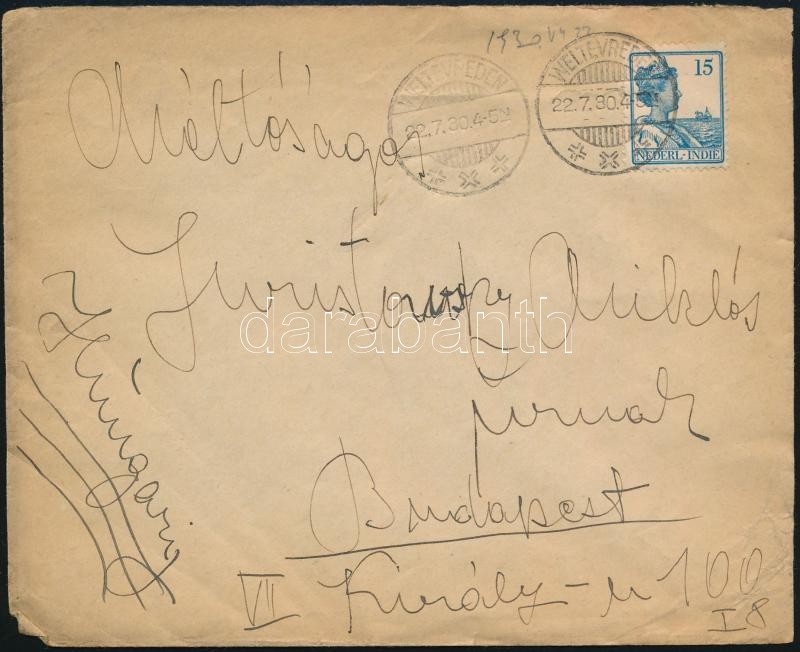 1930 VII 22
WELTEVREDEN
22.7.30.4-5N
WELTEVREDEN
22.7.30.4-5N
15
NEDERL-INDIE
Méltóságos
Miklós
úrnak
Budapest
VII Király-u 100
I 8
Hungaria
darabanth